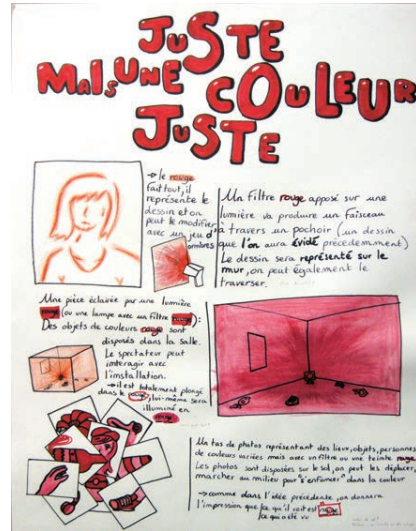 JUSTE
MAIS UNE COULEUR
JUSTE
→ le rouge
fait tout, il
représente le
dessin et on
peut le modifier
avec un jeu d'
ombres
Un filtre rouge apposé sur une
lumière va produire un faisceau
à travers un pochoir (un dessin
que l'on aura évidé précedemment)
Le dessin sera représenté sur le
mur, on peut également le
traverser.
Une pièce éclairée par une lumière
rouge (ou une lampe avec un filtre rouge):
Des objets de couleurs rouge sont
disposés dans la salle.
Le spectateur peut
interagir avec
l'installation.
→ il est totalement plongé
dans le rouge, lui-même sera
illuminé en
rouge
Un tas de photos représentant des lieux, objets, personnes
de couleurs variées mais avec un filtre ou une teinte rouge.
Les photos sont disposées sur le sol, on peut les déplacer,
marcher au milieu pour "s'enfumer" dans la couleur
→ comme dans l'idée précédente, on donnera
l'impression que ce qu'il voit est rouge